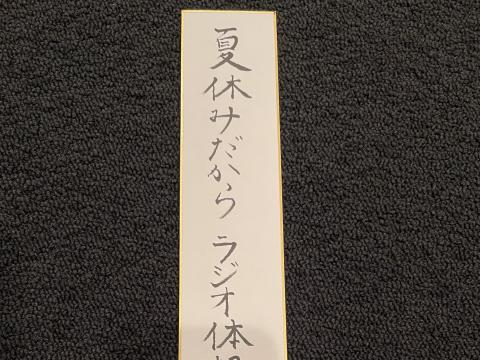 夏休みだから ラジオ体